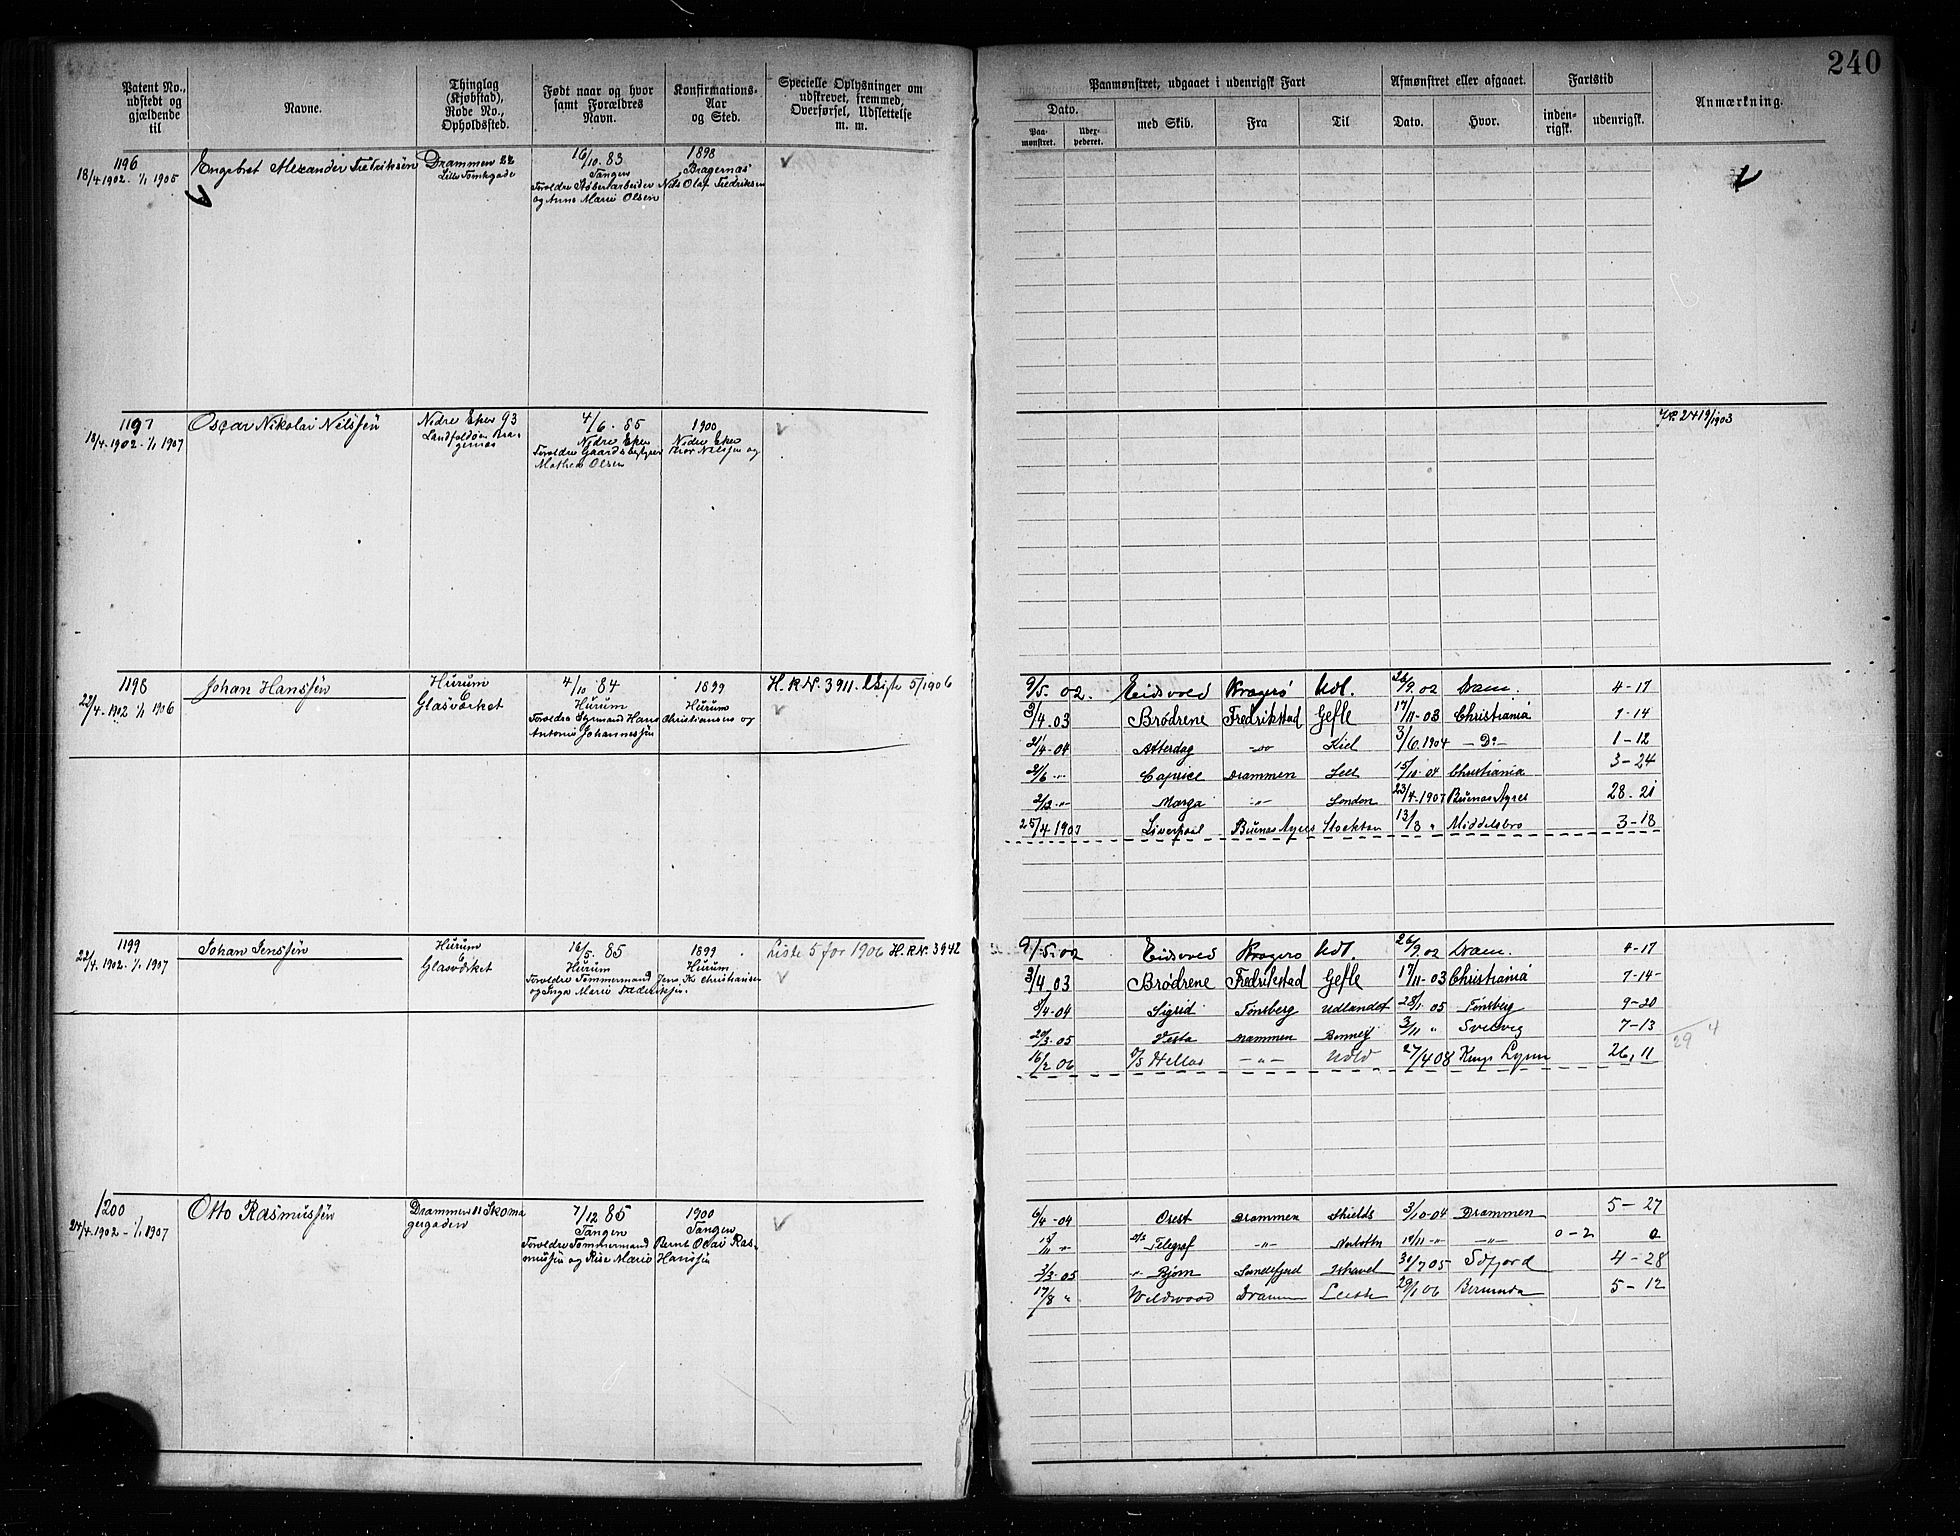 240
Patent No., udstedt og gjældende til
Navne.
Thinglag (Kjøbstad), Rode No., Opholdssted.
Født naar og hvor samt Forældres Navn.
Konfirmations-Aar og Sted.
Specielle Oplysninger om udskrevet, fremmed, Overførsel, Udslettelse m. m.
Paamønstret, udgaaet i udenrigsk Fart
Afmønstret eller afgaaet.
Fartstid
Anmærkning.
Dato.
med Skib.
Fra
Til
Dato.
Hvor.
inden-rigsk.
udenrigsk.
Paa-mønstret.
1196
18/4 1902. 1/1 1905
Engebret Alexander Fredriksen
Drammen 22
16/10. 83
Tangen
og Anne Marie Olsen
1898
Bragernæs
Nils Olaf Fredriksen
1197
18/4. 1902. 1/1 1907
Oscar Nikolai Nilssen
Nedre Eker 93
4/6. 85
Nedre Eker
Mathea Olsen
1900
Nedre Eker
Thor Nilssen og
1198
22/4. 1902 1/1 1906
Johan Hanssen
Hurum
6
Glasværket
4/10 84
Hurum
Forældre Sømand Hans
Antonie Johannessen
1899
Hurum
Christiansen og
H.R.N. 3911. Liste 5/1906
9/5. 02. Eidsvold Kragerø Udl. 26/9. 02 Dram. 4-17
3/4. 03 Brødrene Fredrikstad Gefle 17/11-03 Christiania 7-14
21/4-04 Atterdag -do- Kiel 3/6. 1904 -Do- 1-12
2/6 -"- Caprice Drammen 15/10-04 Christiania 3-24
2/12 -"- Marga -"- London 23/4-1907 Buenos Ayres 28-21
25/4 1907 Liverpool Buenos Ayres Stockton 13/8 " Middelsbro 3-18
1199
22/4. 1902. 1/1. 1907
Johan Jenssen
Hurum
6
Glasværket
16/5. 85
Hurum
Forældre Tømmermand
og Inga Marie Frederiksen
1899
Hurum
Jens Kr Christiansen
Liste 5 for 1906 H.R.N. 3942
9/5. 02 Eidsvold Kragerø Udl. 26/9. 02 Dram. 4-17
3/4 03 Brødrene Fredrikstad Gefle 17/11-03 Christiania 7-14
8/4-04 Sigrid Tønsberg Udlandet 28/1. 05 Tønsberg 9-20
20/3. 05 Vesta Drammen 3/11 " Svelvig 7-13
16/2 06 Hellas -"- Udld 27/4 08 Kings Lynn 26, 11
29
4
1200
24/4. 1902 - 1/1 1907
Otto Rasmussen
Drammen 11 Skoma
gergaden
7/12 85
Tangen
Forældre Tømmermand
mussen og Rise Marie
1900
Tangen
Bernt Oscar Ras-
Hanssen
6/4-04 Orest Drammen Shields 3/10-04 Drammen 5-27
15/11 -"- Telegraf -"- 19/11 -"- -"- 0-2 0
3/3-05 -"- Bjørn Sandefjord Ishavet 30/7 05 Søfjord 4-28
17/8 " Wildwood Dramm Leith 29/1 06 Bermuda 5-12